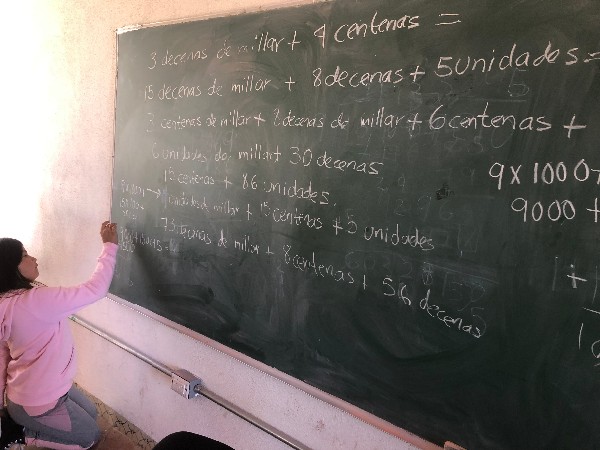 3 decenas de millar + 4 centenas =
15 decenas de millar + 8 decenas + 5 Unidades =
3 centenas de millar + 2 decenas de millar + 6 centenas +
6 unidades de millar + 30 decenas
15 centenas + 86 unidades.
unidades de millar + 15 centenas + 5 unidades
73 decenas de millar + 8 centenas + 56 decenas
9 x 1000
9000 +